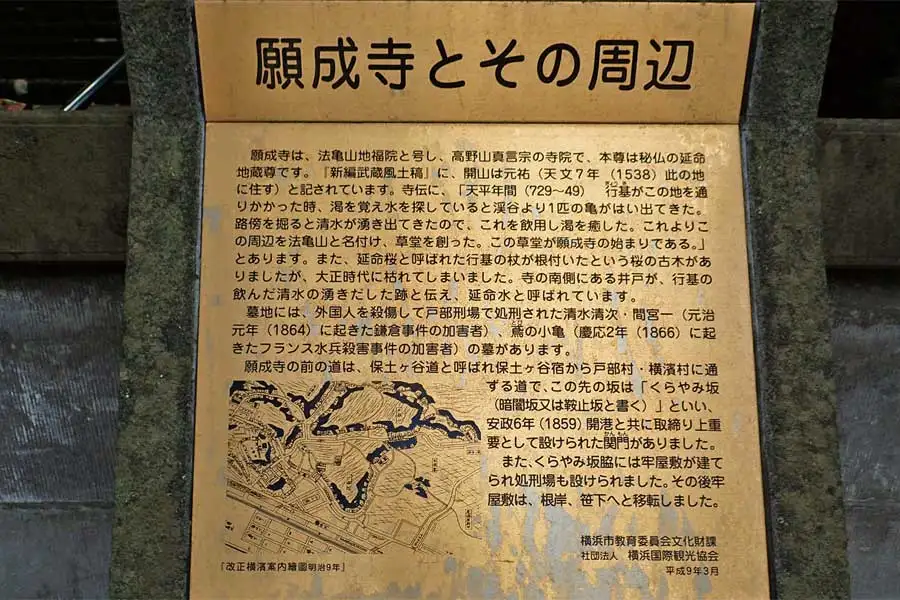 願成寺とその周辺
願成寺は、法亀山地福院と号し、高野山真言宗の寺院で、本尊は秘仏の延命
地蔵尊です。『新編武蔵風土稿』に、開山は元祐（天文7年（1538）此の地
に住す）と記されています。寺伝に、「天平年間（729～49）行基がこの地を通
りかかった時、渇を覚え水を探していると渓谷より1匹の亀がはい出てきた。
路傍を掘ると清水が湧き出てきたので、これを飲用し渇を癒した。これよりこ
の周辺を法亀山と名付け、草堂を創った。この草堂が願成寺の始まりである。」
とあります。また、延命桜と呼ばれた行基の杖が根付いたという桜の古木があ
りましたが、大正時代に枯れてしまいました。寺の南側にある井戸が、行基の
飲んだ清水の湧きだした跡と伝え、延命水と呼ばれています。
墓地には、外国人を殺傷して戸部刑場で処刑された清水清次・間宮一（元治
元年（1864）に起きた鎌倉事件の加害者）、鳶の小亀（慶応2年（1866）に起
きたフランス水兵殺害事件の加害者）の墓があります。
願成寺の前の道は、保土ヶ谷道と呼ばれ保土ヶ谷宿から戸部村・横濱村に通
ずる道で、この先の坂は「くらやみ坂
（暗闇坂又は鞍止坂と書く）」といい、
安政6年（1859）開港と共に取締り上重
要として設けられた関門がありました。
また、くらやみ坂脇には牢屋敷が建て
られ処刑場も設けられました。その後牢
屋敷は、根岸、笹下へと移転しました。
横浜市教育委員会文化財課
社団法人 横浜国際観光協会
平成9年3月
「改正横濱案内繪圖明治9年」